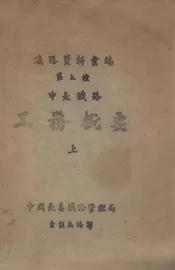 鐵路資料彙編
第五種
中長鐵路
工務概要
上
中國長春鐵路管理局